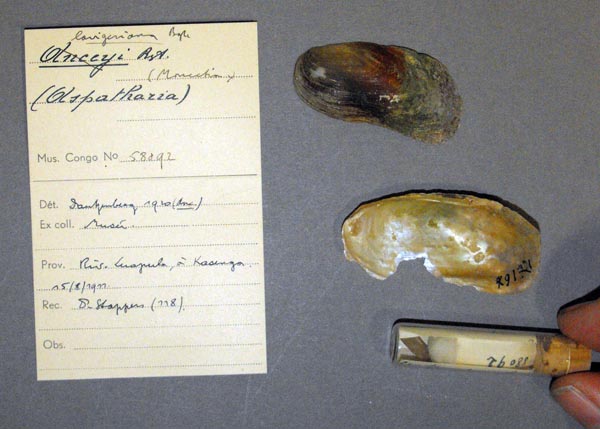 lavigeriana Bgt.
Anceyi Bgt.
(Moncetia)
(Aspatharia)
Mus. Congo No 58092
Dét. Dautzenberg 1920 (Anc.)
Ex coll. Musée
Prov. Riv. Luapula, à Kasenga
15/8/1911
Rec. Dr Stappers (118)
Obs.
58092